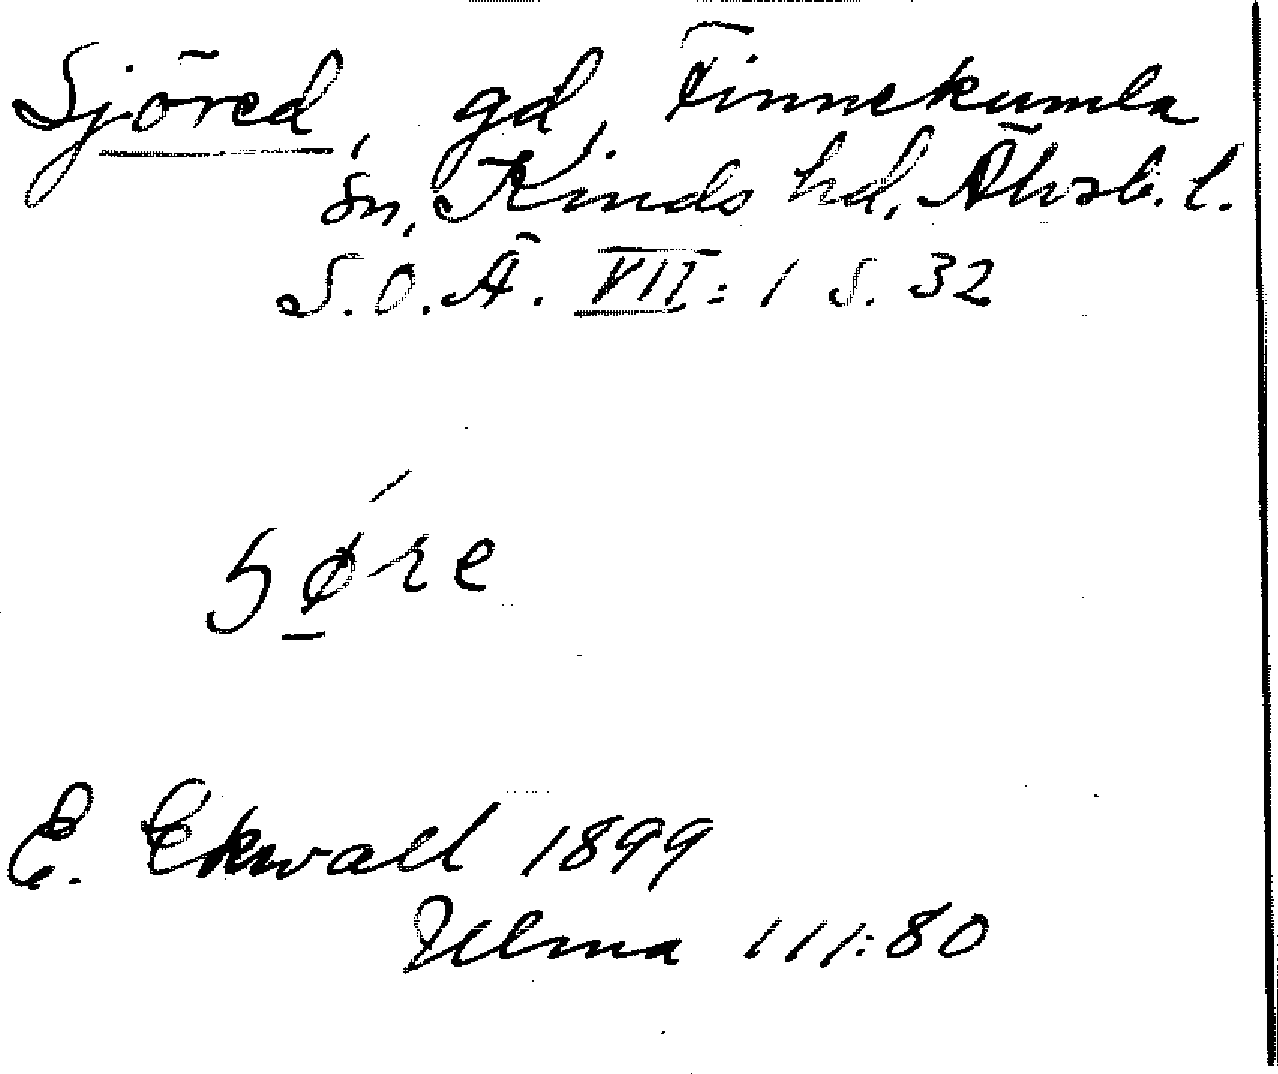 Sjöred, gd, Finnekumla
sn, Kinds hd, Älvsb. l.
S.O.Ä. VII:1 s. 32
E. Ekwall 1899
Ulma 111:80